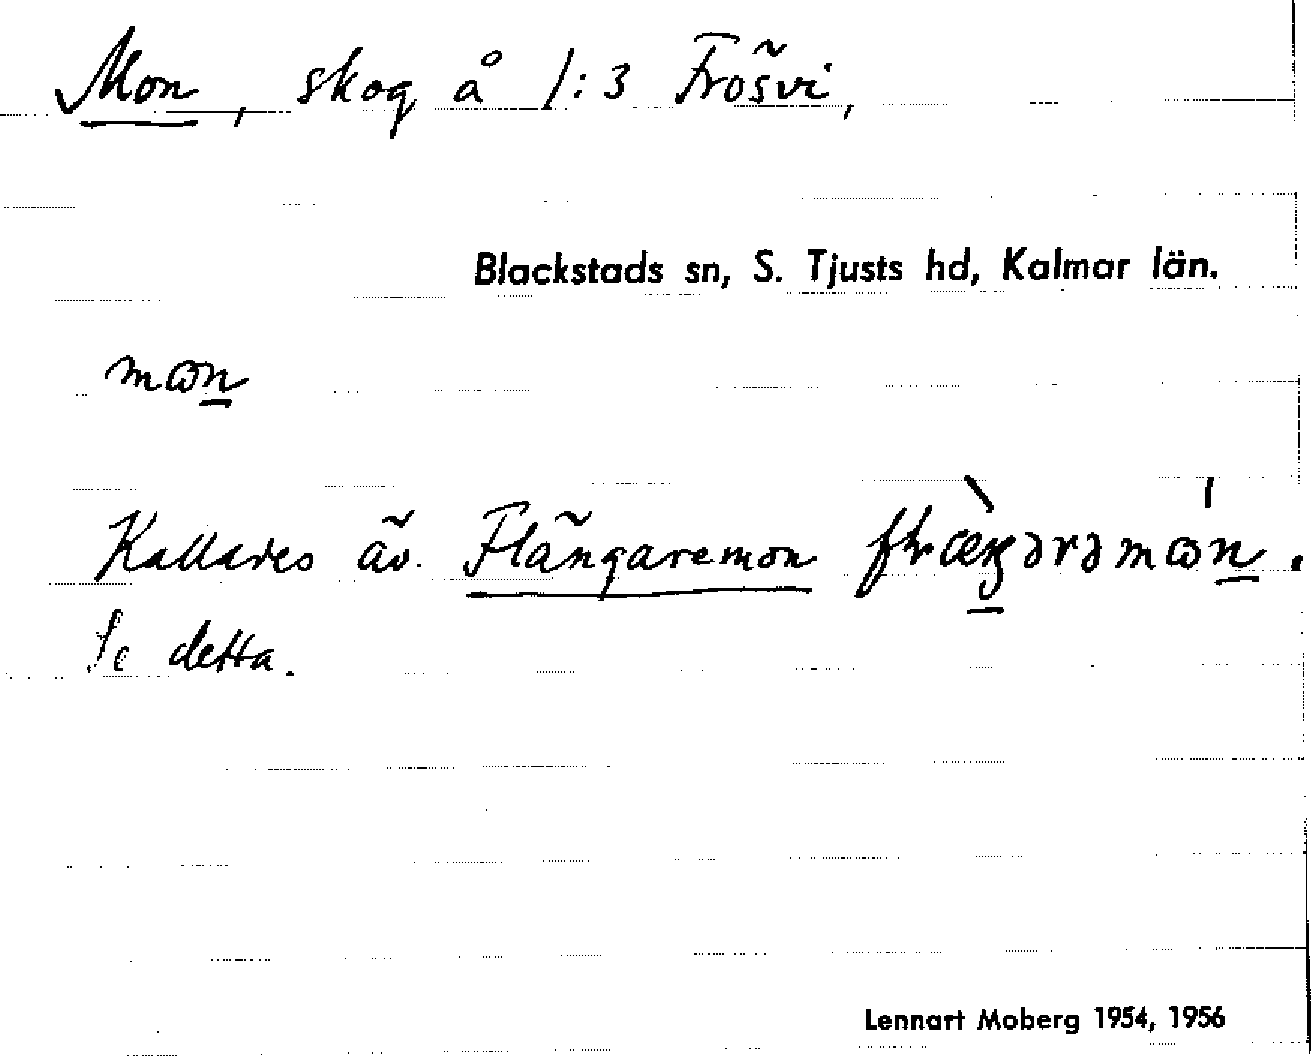 Mon, skog å 1:3 Frösvi,
Blackstads sn, S. Tjusts hd, Kalmar län.
mɷn
Kallades äv. Flängaremon
Se detta.
Lennart Moberg 1954, 1956